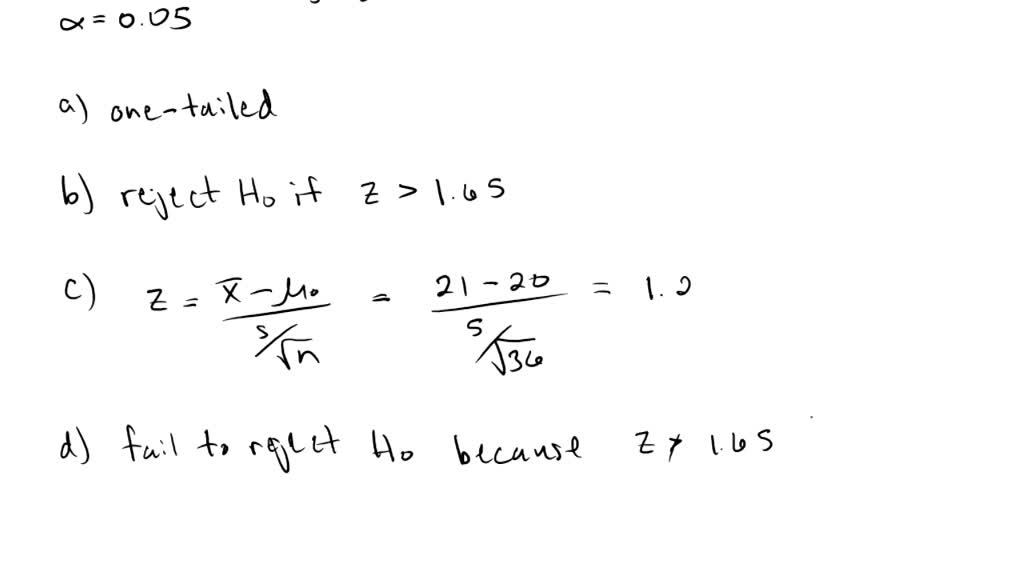 α = 0.05
a) one-tailed
b) reject H₀ if z > 1.65
c) z = (x̄ - μ₀) / (s/√n) = (21 - 20) / (5/√36) = 1.2
d) fail to reject H₀ because z ≯ 1.65